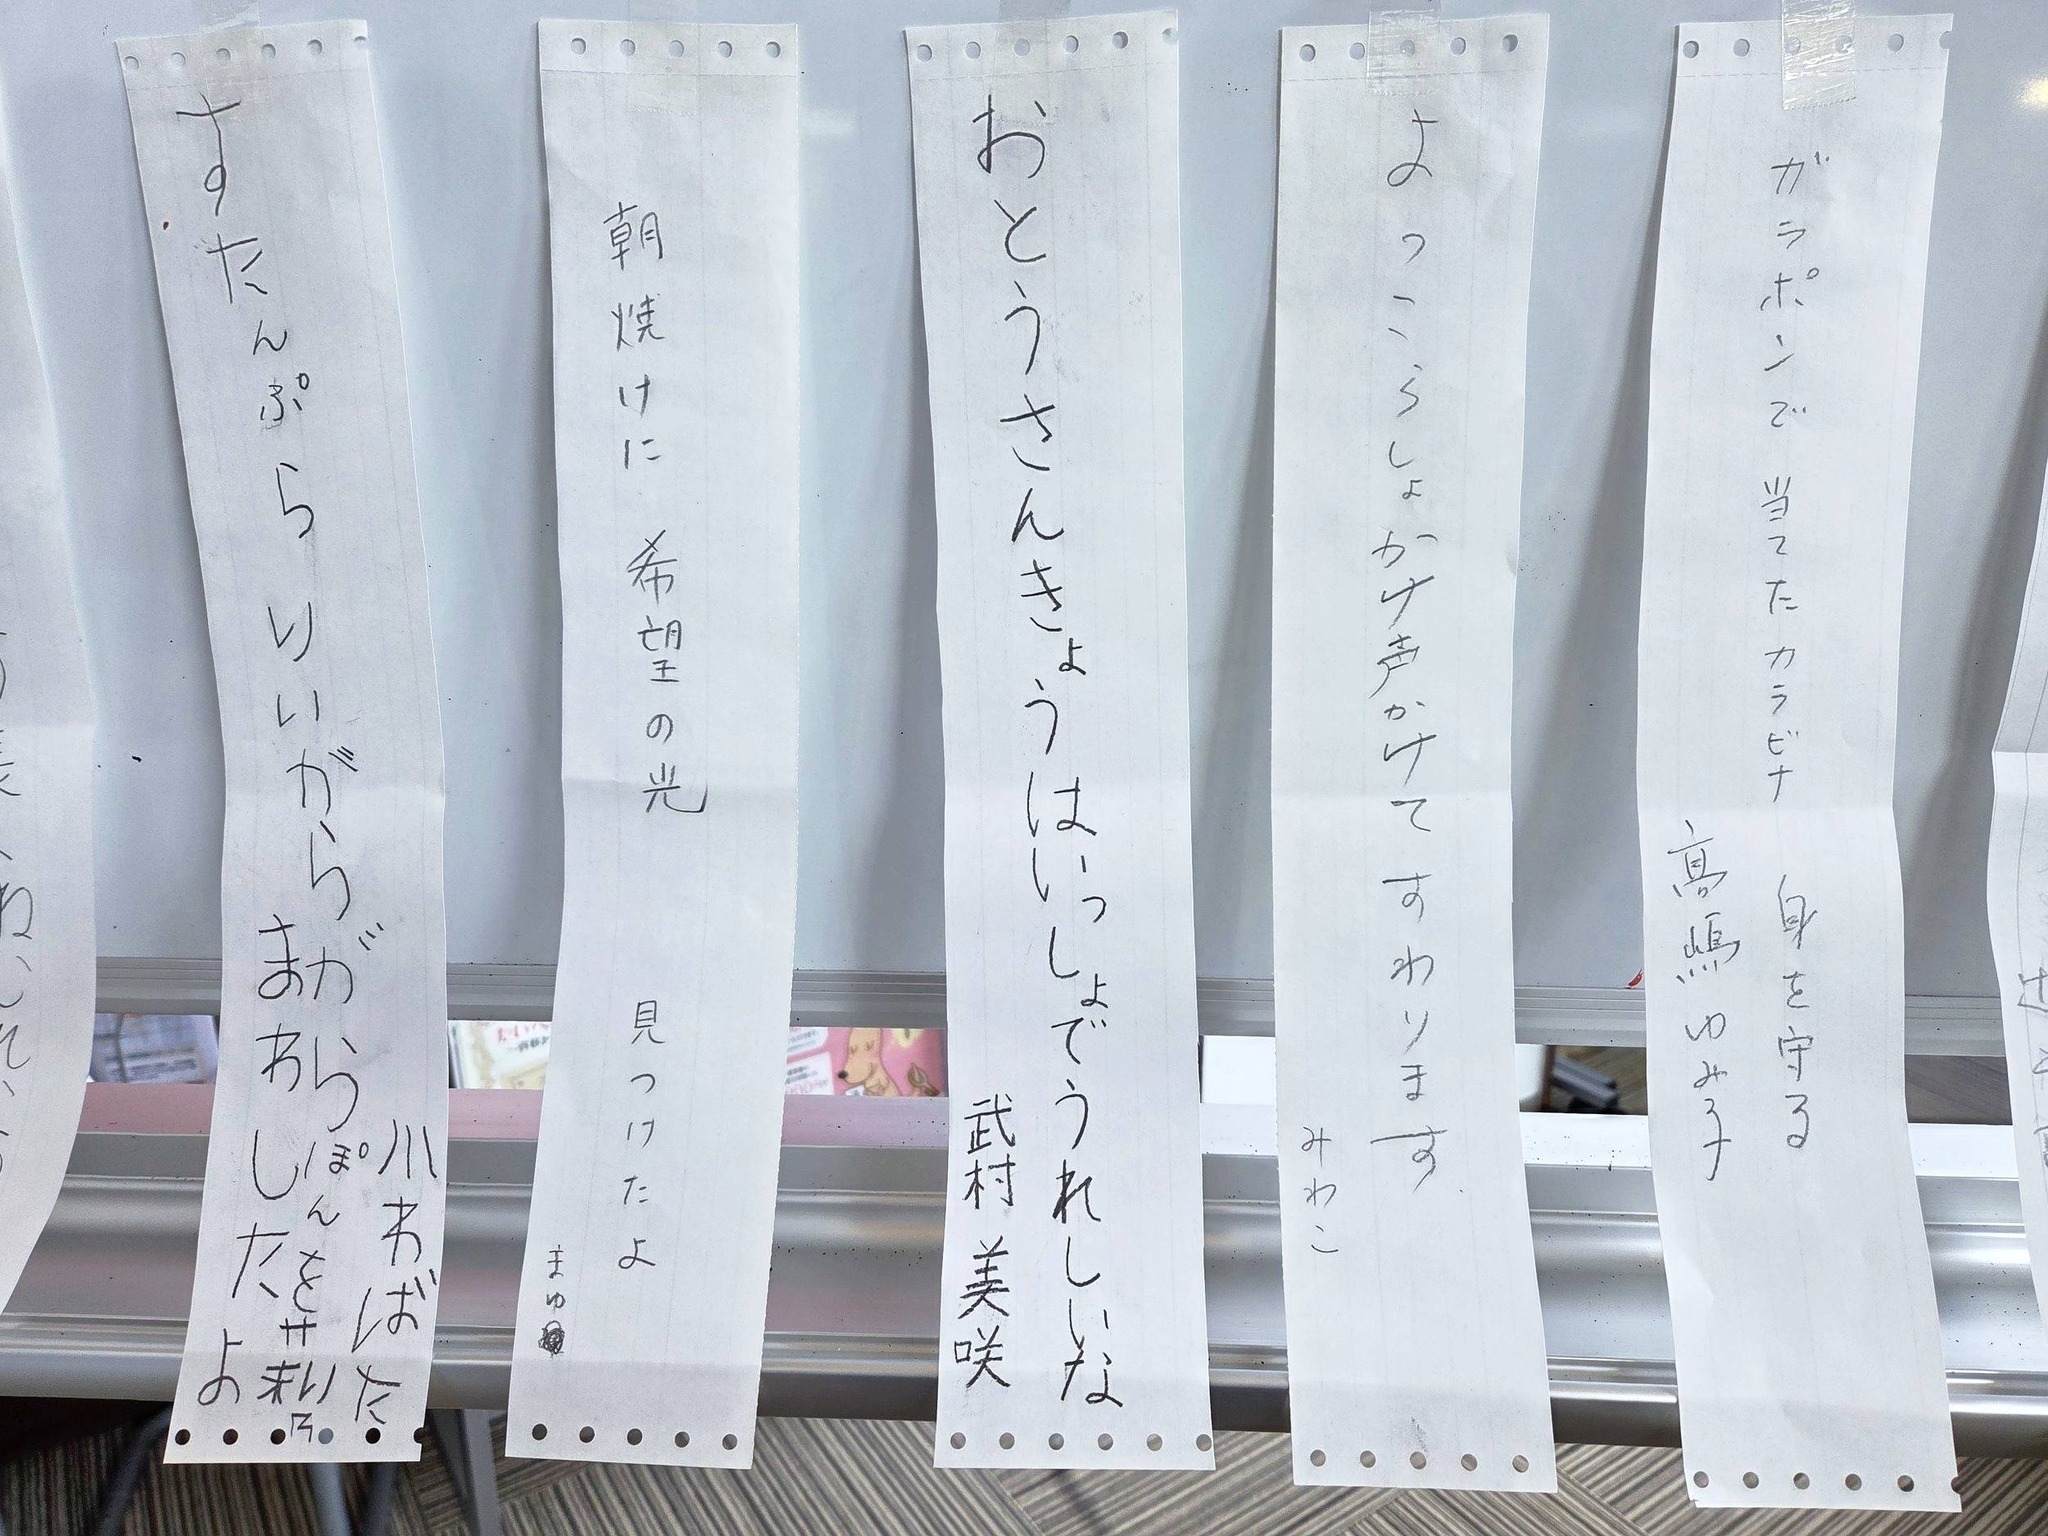 ガラポンで 当てたカラビナ 身を守る
高嶋ゆみ子
よっこらしょかけ声かけて すわります
みわこ
おとうさんきょうはいっしょでうれしいな
武村 美咲
朝焼けに 希望の光 見つけたよ
まゆ
すたんぷらりいがらがらぽんを
まわしたよ
川わばた